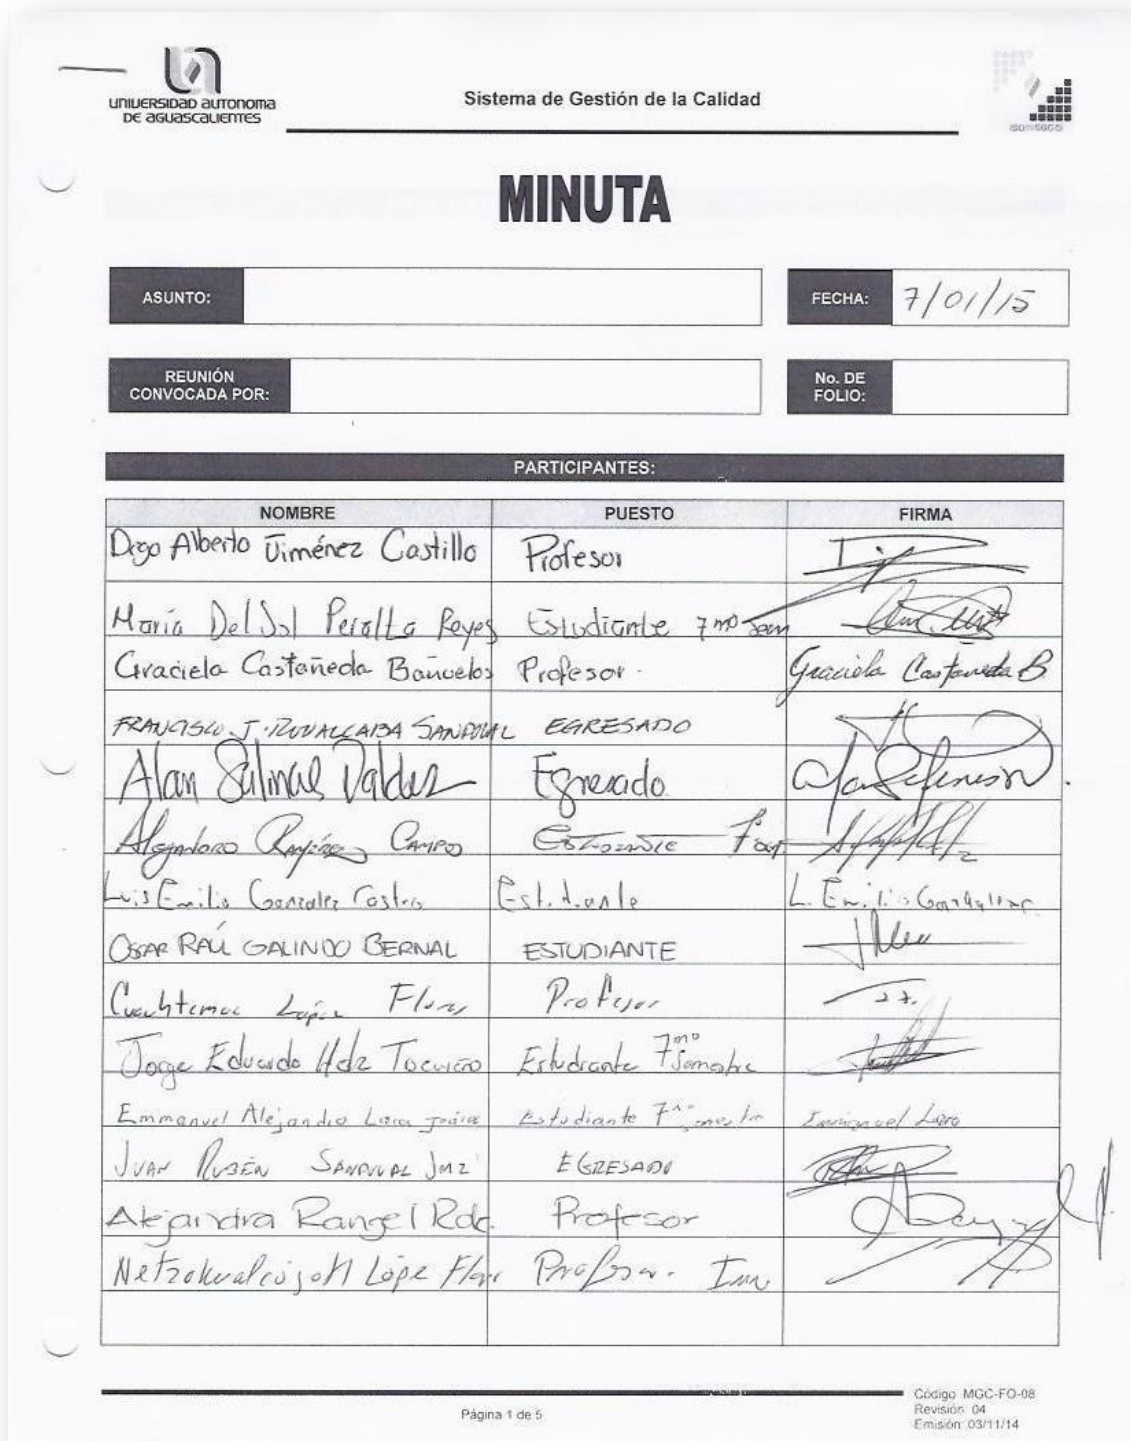 UNIVERSIDAD AUTONOMA
DE AGUASCALIENTES
Sistema de Gestión de la Calidad
MINUTA
ASUNTO:
FECHA: 7/01/15
REUNIÓN
CONVOCADA POR:
No. DE
FOLIO:
PARTICIPANTES:
NOMBRE PUESTO FIRMA
Diego Alberto Jiménez Castillo Profesor
María Del Sol Peralta Reyes Estudiante 7mo Sem
Graciela Castañeda Bañuelos Profesor. Graciela Castañeda B
FRANCISCO J. RUVALCABA SANDOVAL EGRESADO
Alan Salinas Valdez Egresado
Alejandro Ramírez CAMPOS ESTUDIANTE
Luis Emilio Gonzalez Castro Estudiante L. Emilio González
OSCAR RAÚL GALINDO BERNAL ESTUDIANTE
Cuauhtemoc López Flores Profesor
Jorge Eduardo Hdz Estudiante 7mo Semestre
Emmanuel Alejandro Lara Estudiante 7mo Semestre Emmanuel Lara
JUAN RUBÉN SANDOVAL JMZ EGRESADO
Alejandra Rangel Rdz. Profesor
Netzahualcoyotl López Flores Profesor.
Página 1 de 5
Código: MGC-FO-08
Revisión: 04
Emisión: 03/11/14